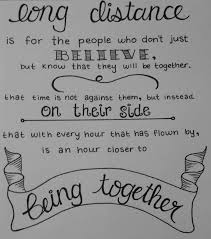 long distance
is for the people who don't just
BELIEVE,
but know that they will be together.
that time is not against them, but instead
on their side
that with every hour that has flown by,
is an hour closer to
being together